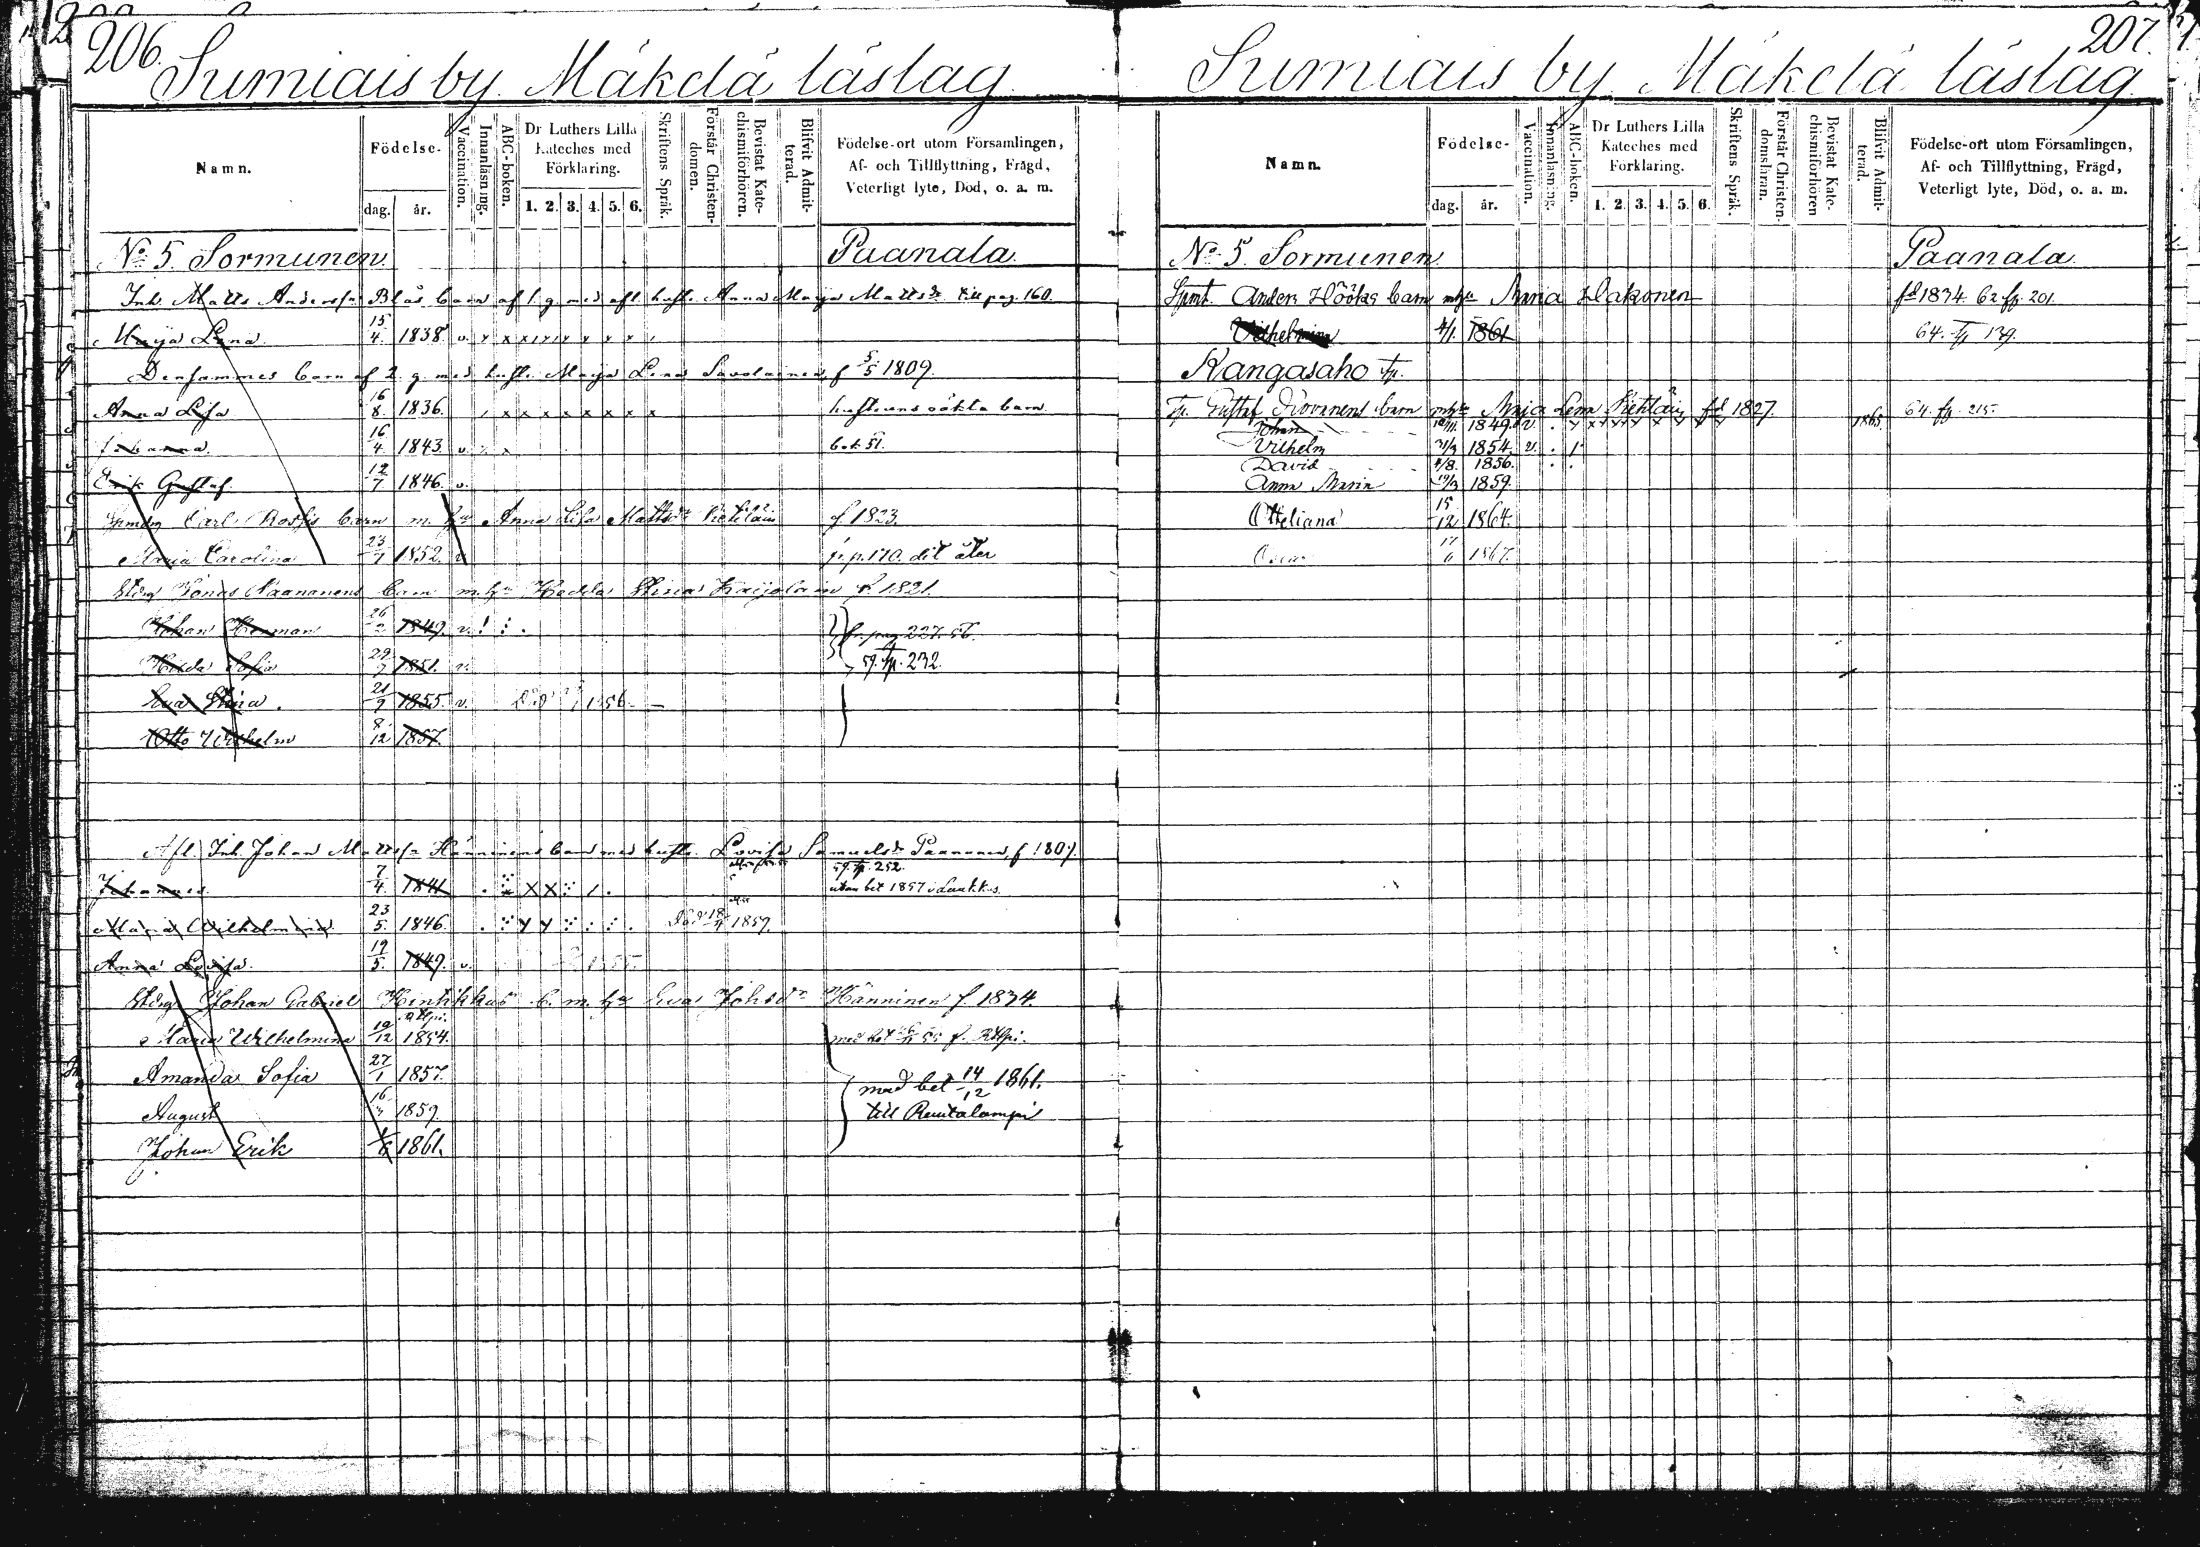 206.
Sumiais by Mäkelä läslag
Namn.
Födelse-
dag.
år.
Vaccination.
Innanläsning.
ABC-boken.
Dr Luthers Lilla
Kateches med
Förklaring.
1. 2. 3. 4. 5. 6.
Skriftens Språk.
Förstår Christen-
domen.
Bevistat Kate-
chismiförhören.
Blifvit Admit-
terad.
Födelse-ort utom Församlingen,
Af- och Tillflyttning, Frägd,
Veterligt lyte, Död, o. a. m.
No 5. Sormunen. Paanala.
Inh. Matts Anders barn af 1 g. med afl. hust. Anna Maja Matts till pag. 160.
Maja Lena 15/4 1838 v.
Densammes barn af 2 g. med hust. Maja Lena Savolainen, f 5/5 1809.
Anna Lisa 16/8 1836. hustruns oäkta barn
Johanna 16/4 1843 v.
Erik Gustaf 12/7 1846. v.
Carl Ross barn m. h. Anna Lisa Matts f. 1823.
Maria Carolina 23/7 1852. v. p. 170. dit åter
Jonas Paananens barn m. h. Hedda Stina f. 1821.
Johan Herman 26/2 1849. v. fr. pag. 227. 56.
Hedda Sofia 29/7 1851. v. 59. fp. 232.
Eva Stina 21/9 1855. v. Död 1856
Otto Wilhelm 8/12 1857.
Afl. Inh. Johan Matts Hänninens barn med hust. Lovisa Samuels Paananen, f 1807.
59. fp. 252.
Johannes 7/4 1841 utan bet 1857 i Laukkas
Maria Wilhelmina 23/5 1846. Död 18/4 1859.
Anna Lovisa 19/5 1849. v.
Johan Gabriel b. m. h. Eva Johsdr Hänninen f. 1834.
Maria Wilhelmina 19/12 1854. med bet 55 f. Rtlpi.
Amanda Sofia 27/1 1857. med bet 14/12 1861.
August 1859. till Rautalampi
Johan Erik 1861.
207.
Sumiais by Mäkelä läslag
Namn.
Födelse-
dag.
år.
Vaccination.
Innanläsning.
ABC-boken.
Dr Luthers Lilla
Kateches med
Förklaring.
1. 2. 3. 4. 5. 6.
Skriftens Språk.
Förstår Christen-
domsläran.
Bevistat Kate-
chismiförhören
Blifvit Admit-
terad.
Födelse-ort utom Församlingen,
Af- och Tillflyttning, Frägd,
Veterligt lyte, Död, o. a. m.
No 5. Sormunen Paanala
Spmt. Anders Hööks barn Maria Hakonen fd 1834. 62. fp. 201.
Vilhelmina 1861 64. 139.
Kangasaho tp.
Tp. Gustaf barn Maja Lena fd 1827. 1865 64. fp. 215.
Johan 1849 v.
Vilhelm 1854. v.
David 1856.
Anna Maria 1859.
Otteliana 15/12 1864.
1867.